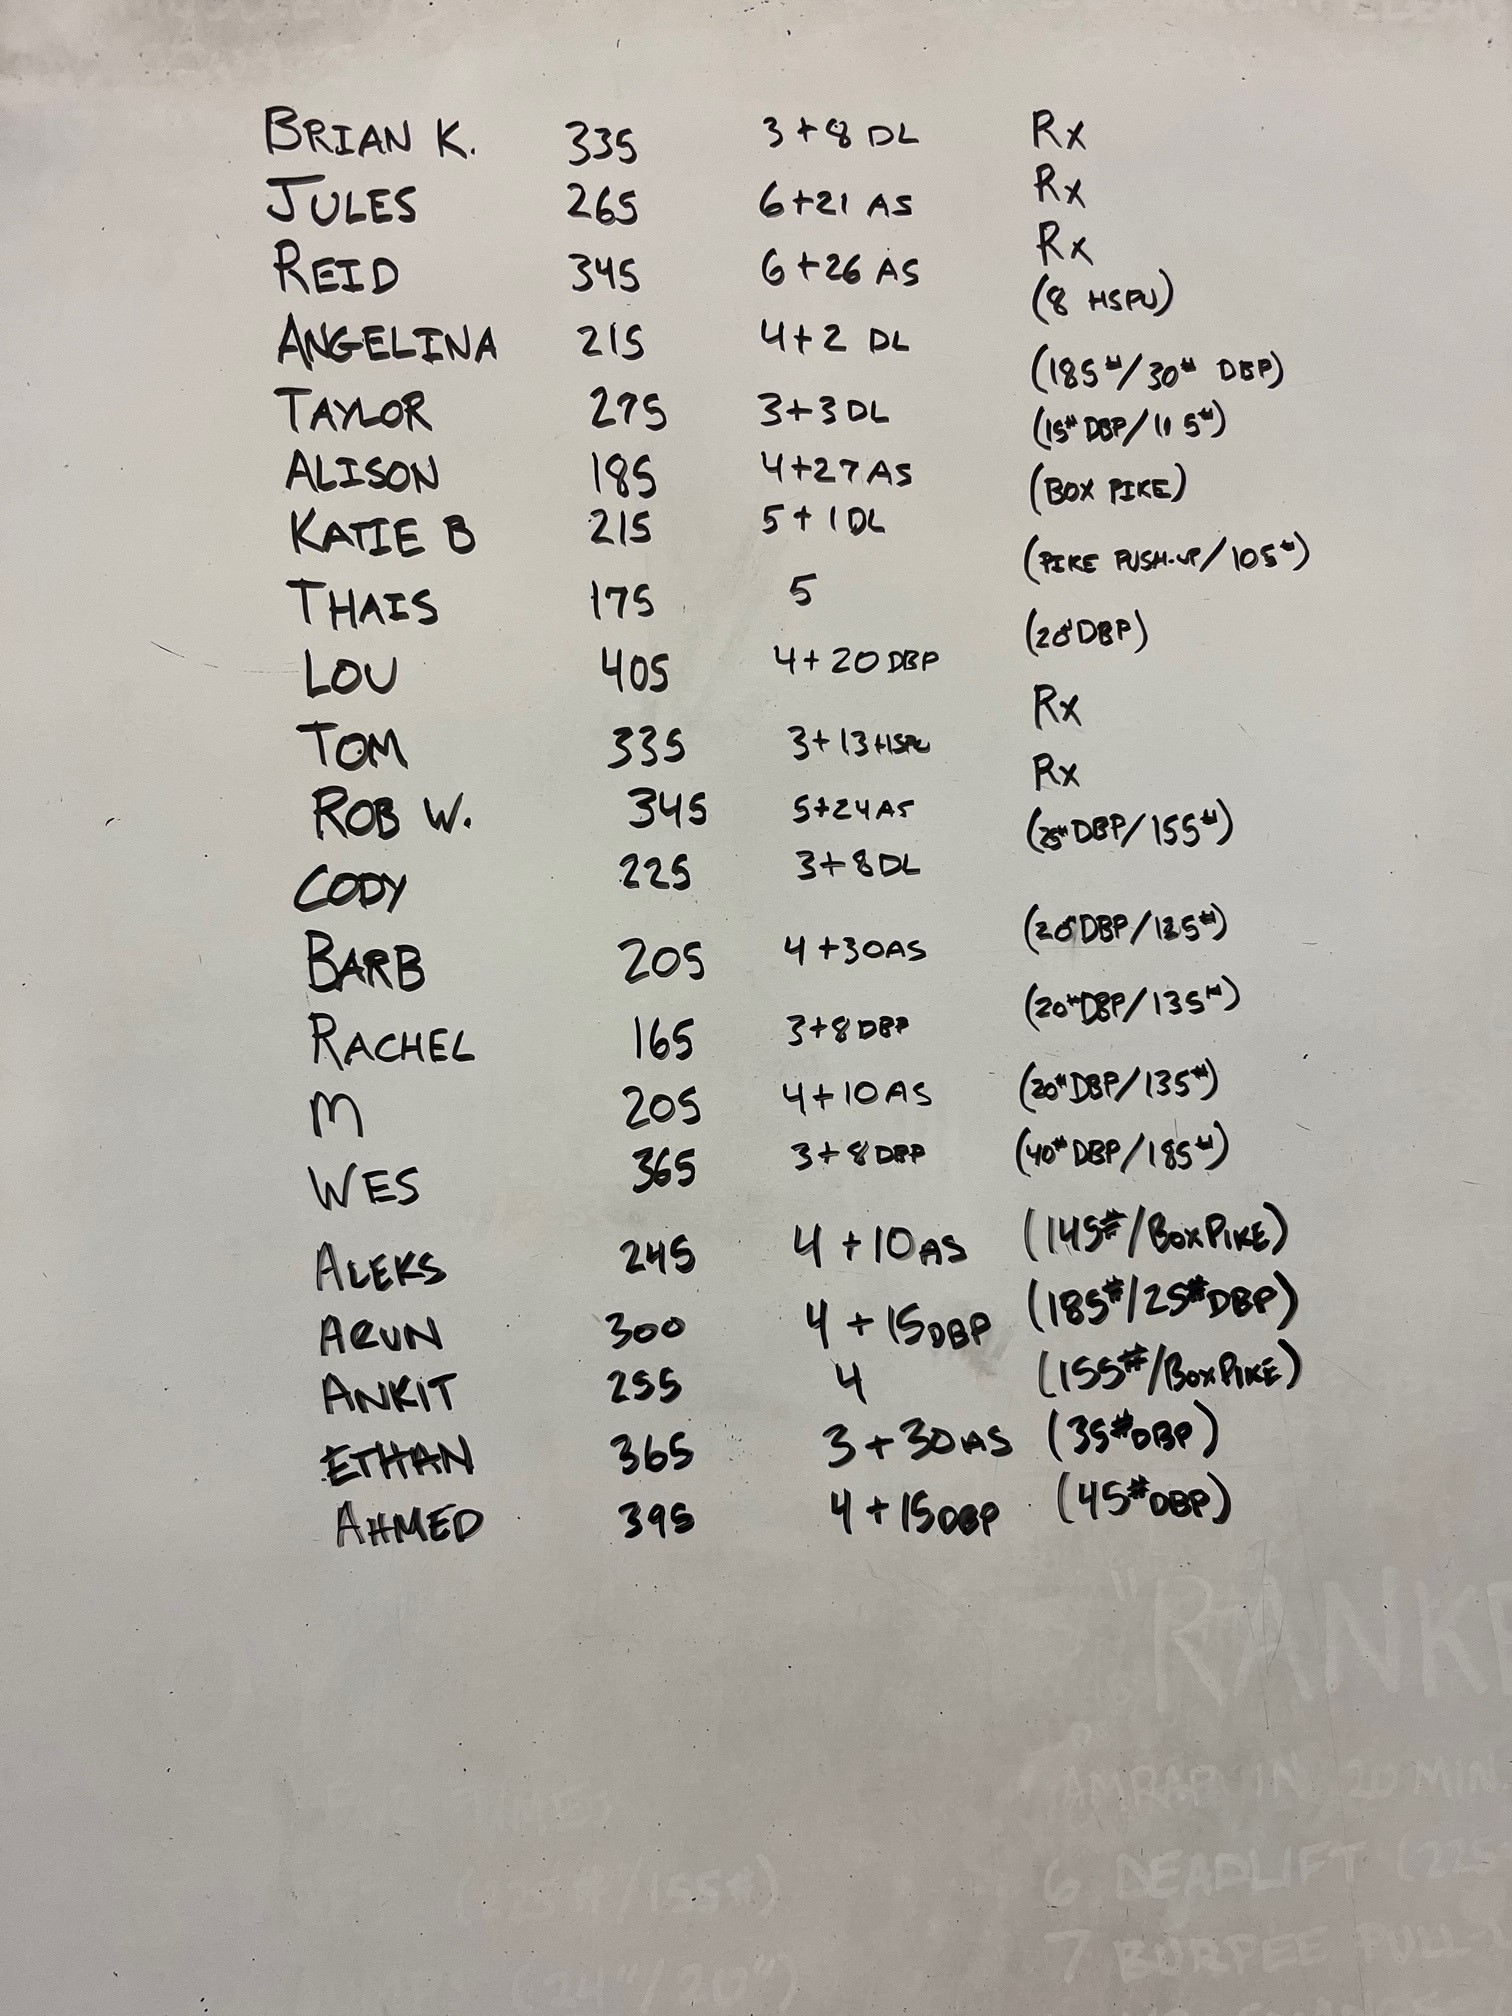 BRIAN K. 335 3+8 DL Rx
JULES 265 6+21 AS Rx
REID 345 6+26 AS Rx
ANGELINA 215 4+2 DL (8 HSPU)
TAYLOR 275 3+3 DL (185#/30# DBP)
ALISON 185 4+27 AS (15# DBP/115#)
KATIE B 215 5+1 DL (BOX PIKE)
THAIS 175 5 (PIKE PUSH-UP/105#)
LOU 405 4+20 DBP (20# DBP)
TOM 335 3+13 HSPU Rx
ROB W. 345 5+24 AS Rx
CODY 225 3+8 DL (25# DBP/155#)
BARB 205 4+30 AS (20# DBP/125#)
RACHEL 165 3+8 DBP (20# DBP/135#)
M 205 4+10 AS (20# DBP/135#)
WES 365 3+8 DBP (40# DBP/185#)
ALEKS 245 4+10 AS (145#/BOX PIKE)
ARUN 300 4+15 DBP (185#/25# DBP)
ANKIT 255 4 (155#/BOX PIKE)
ETHAN 365 3+30 AS (35# DBP)
AHMED 395 4+15 DBP (45# DBP)
AMRAP IN 20 MIN.
6 DEADLIFT (225
7 BURPEE PULL-
(24"/20")